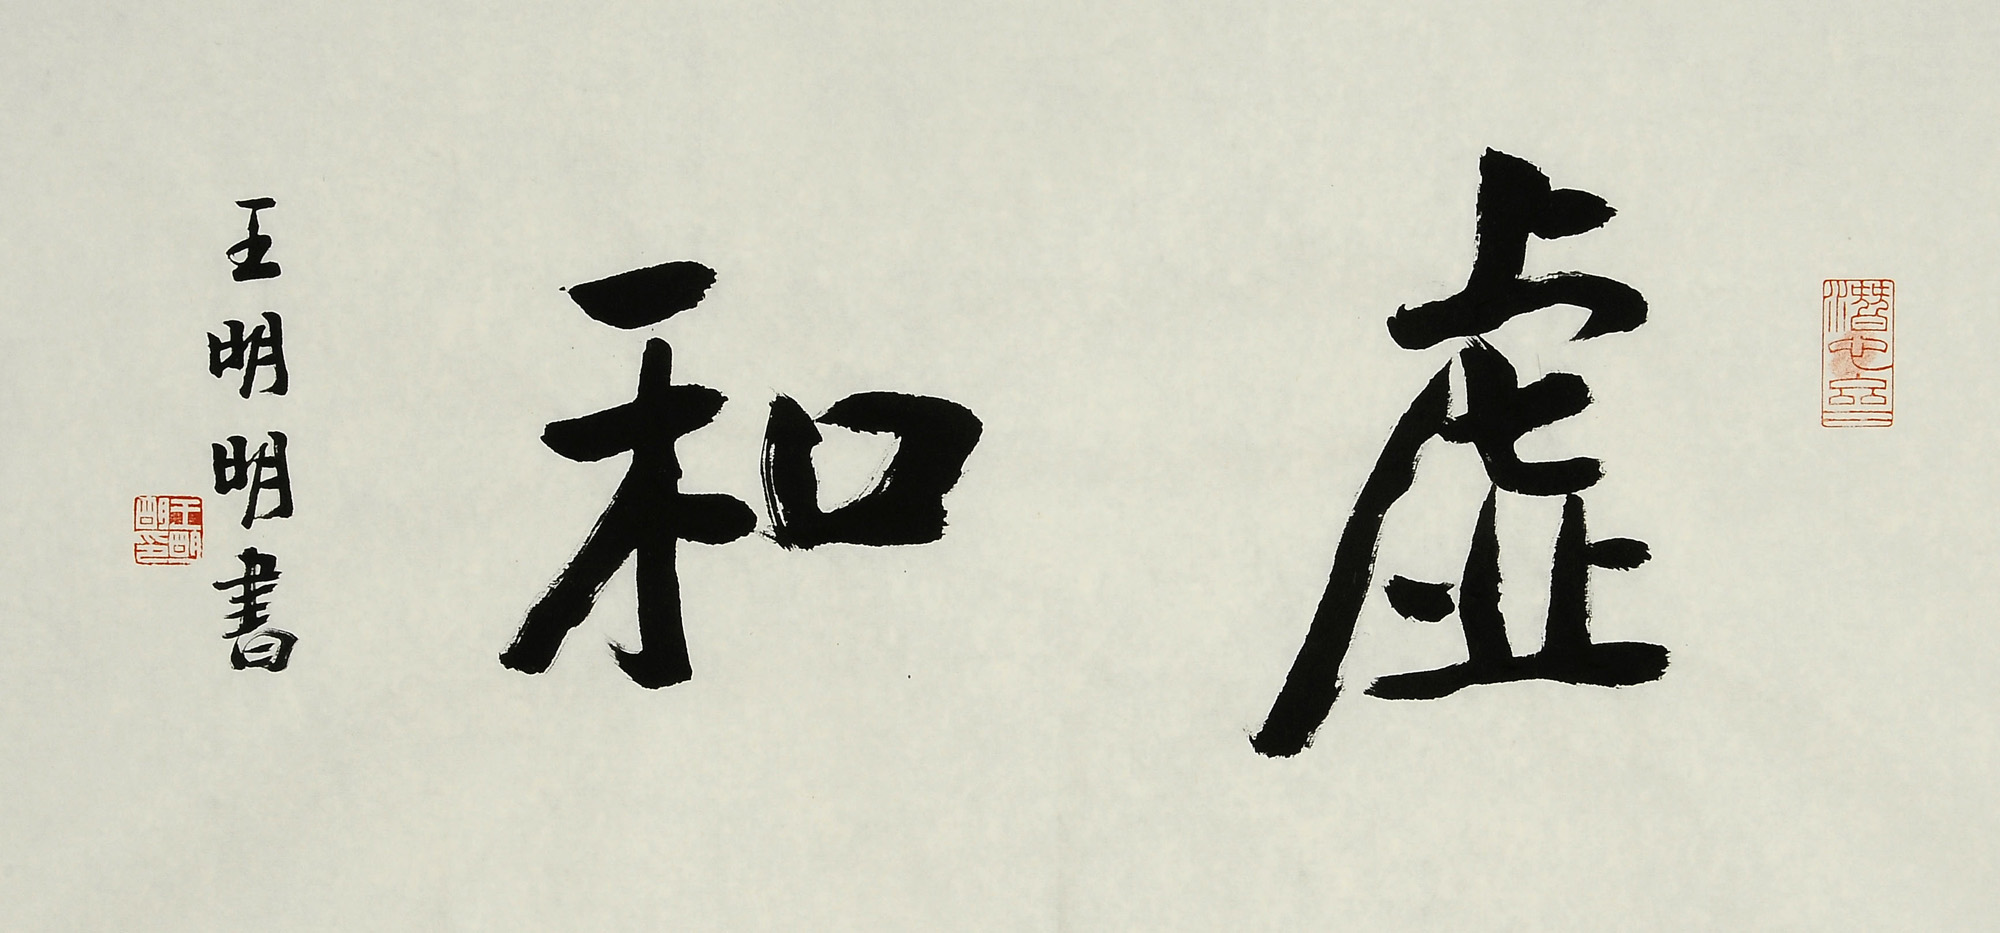 虚和
王明明書
王明明印